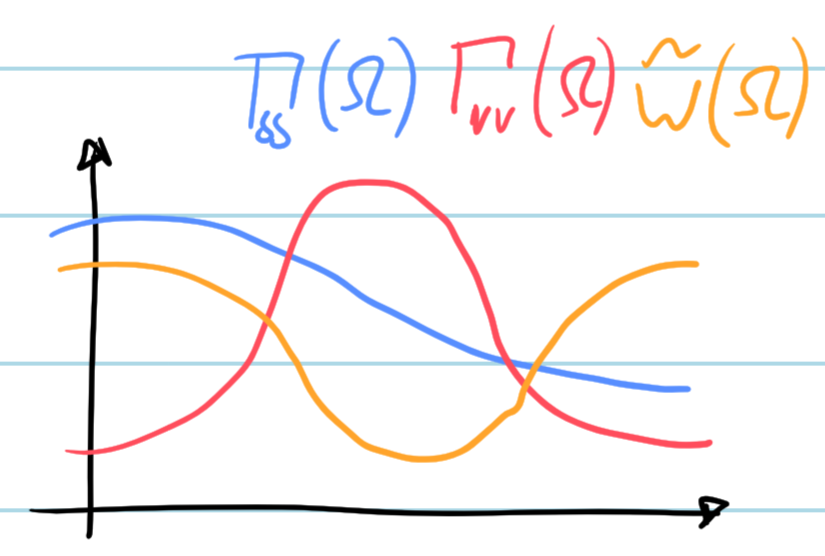 Γ_ss(Ω) Γ_vv(Ω) w̃(Ω)